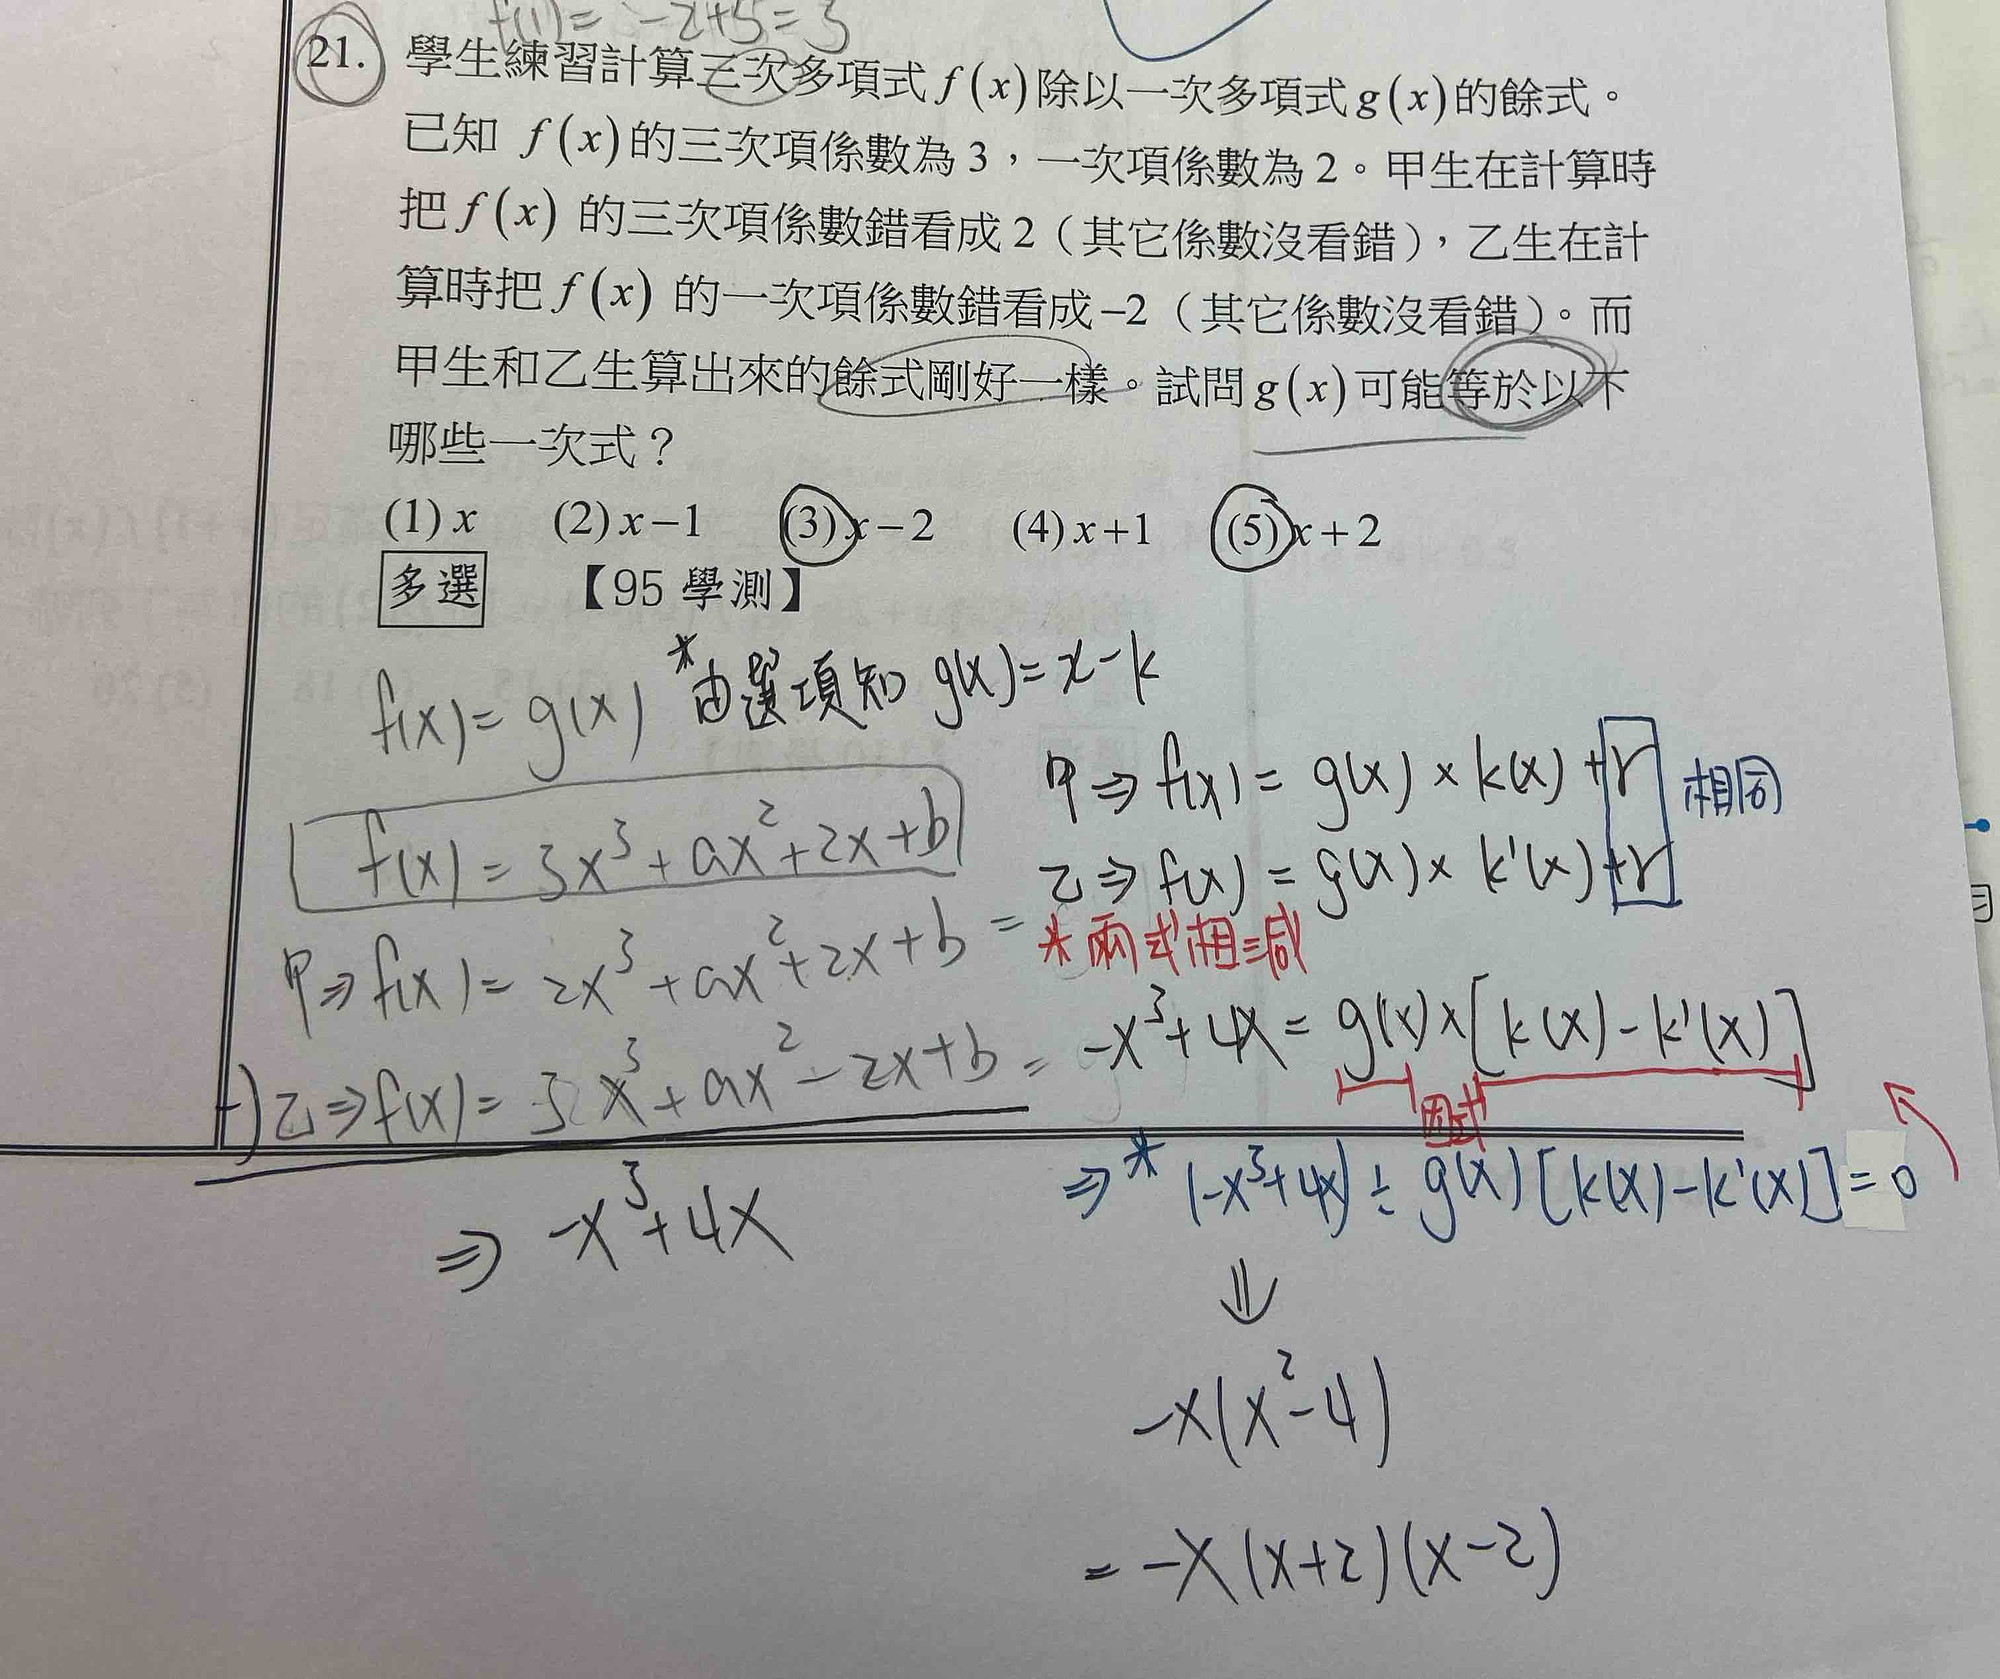 f(1)= -2+5=3
21. 學生練習計算三次多項式 f(x) 除以一次多項式 g(x) 的餘式。
已知 f(x) 的三次項係數為 3，一次項係數為 2。甲生在計算時
把 f(x) 的三次項係數錯看成 2（其它係數沒看錯），乙生在計
算時把 f(x) 的一次項係數錯看成 -2（其它係數沒看錯）。而
甲生和乙生算出來的餘式剛好一樣。試問 g(x) 可能等於以下
哪些一次式？
(1) x (2) x-1 (3) x-2 (4) x+1 (5) x+2
多選 【95 學測】
*由選項知 g(x)=x-k
f(x)=g(x)
f(x)=3x³+ax²+2x+b
甲⇒f(x)=2x³+ax²+2x+b =
-) 乙⇒f(x)=3x³+ax²-2x+b =
⇒ -x³+4x
甲⇒ f(x)=g(x)×k(x)+r 相同
乙⇒ f(x)=g(x)×k'(x)+r
*兩式相減
-x³+4x=g(x)×[k(x)-k'(x)]
因式
⇒* (-x³+4x)÷g(x)[k(x)-k'(x)]=0
⇓
-x(x²-4)
=-x(x+2)(x-2)